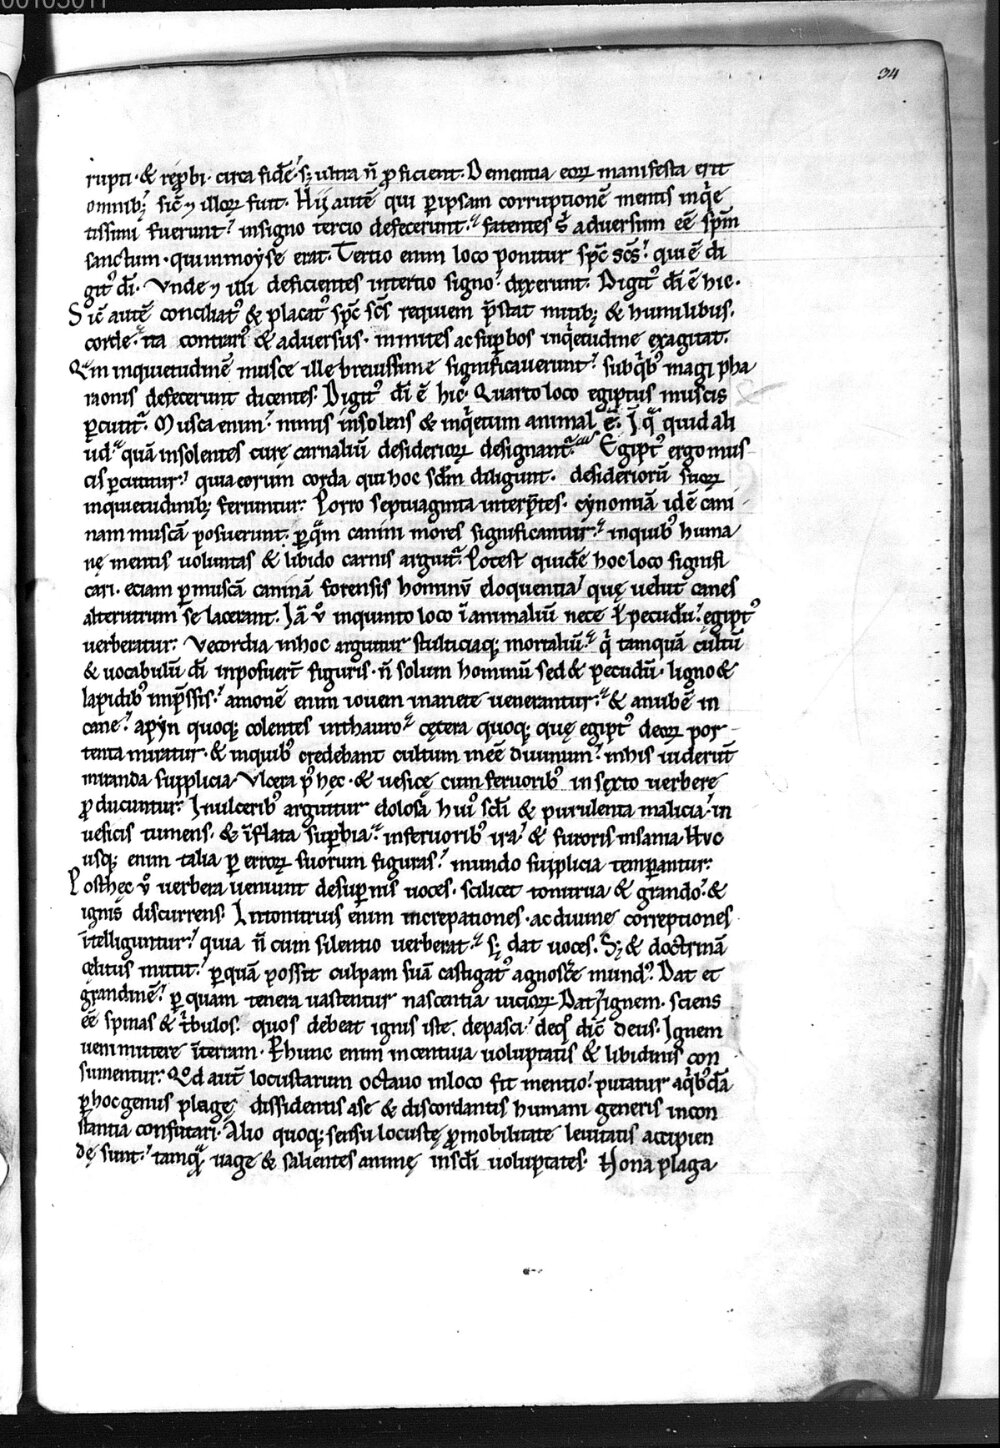 00105011
34
rupti · & rep̱bi · circa fidē · sꝫ ultra ñ ꝓficient · Dementia eoꝝ manifesta erit
omnibꝫ sic̄ ⁊ illoꝝ fuit · Hij autē qui ꝑ ipsam corruptionē mentis inqͥe
tissimi fuerunt · in signo tercio defecerunt · fatentes s̄ adversum eē sp̄m
sanctum · qui in moyse erat · Tertio enim loco ponitur sp̄c sc̄s · qui ē di
gitꝰ dī · Vnde ⁊ illi deficientes in tertio signo · dixerunt · Digitꝰ dī ē hic ·
Sic̄ autē conciliatꝰ & placatꝰ sp̄c sc̄s requiem p̄stat mitibꝫ & humilibus ·
corde · ita contrariꝰ & adversus · inmites ac suꝑbos inqͥetudine exagitat ·
Qͣm inquietudinē musce ille brevissime significaverunt · sub qͥbꝰ magi pha
raonis defecerunt dicentes · Digitꝰ dī ē hic · Quarto loco egiptus muscis
ꝑcutit̄ · Musca enim · nimis insolens & inqͥetum animal ē · Ī qͣ quid ali
ud · quā insolentes curę carnaliū desiderioꝝ designant̄ · Egiptꝰ ergo mus
cis ꝑcutitur · quia eorum corda qui hoc sc̄lm diligunt · desideriorū suoꝝ
inquietudinibꝫ feriuntur · Porro septuaginta interp̄tes · cynomiā idē cani
nam muscā posuerunt · ꝑ qͣm canini mores significantur · in quibꝰ huma
nę mentis voluntas & libido carnis arguit̄ · Potest quidē hoc loco signifi
cari · eciam ꝑ muscā caninā forensis hominū eloquentia · quę velut canes
alterutrum se lacerant · Iā v̊ in quinto loco ī animaliū nece l̄ pecudū · egiptꝰ
verberatur · Vecordia in hoc arguitur stulticiaqꝫ mortaliū · qͥ tamquā cultū
& vocabulū dī inposuerт̄ figuris · ñ solum hominū sed & pecudū · ligno &
lapidibꝰ imp̄ssis · amonē enim iovem in ariete venerantur · & anubē in
cane · apyn quoqꝫ colentes in thauro · cętera quoqꝫ quę egiptꝰ deoꝝ por
tenta miratur · & in quibꝰ credebant cultum inēē divinum · in his viderūt
miranda supplicia · Vlcera p̊ hęc · & vesicę cum fervoribꝰ in sexto verbere
ꝓducuntur · In ulceribꝰ arguitur dolosa huiꝰ sc̄li & purulenta malicia · in
vesicis tumens · & īflata suꝑbia · in fervoribꝰ ira · & furoris insania · Huc
usqꝫ enim talia ꝑ erroꝝ suorum figuras · mundo supplicia temꝑantur ·
Post hęc v̊ verbera veniunt desuꝑ nis voces · scilicet tonitrua & grando · &
ignis discurrens · In tonitruis enim increpationes · ac divine correptiones
ītelliguntur · quia ñ cum silentio verberat · sꝫ dat voces · Sꝫ & doctrinā
cęlitus mittit · ꝑ quā possit culpam suā castigatꝰ agnosc̄e mundꝰ · Dat et
grandinē · ꝑ quam tenera vastentur nascentia vicioꝝ Dat & ignem · sciens
ēē spinas & tͥbulos · quos debeat ignis iste depasci · de qͦ dic̄ deus · Ignem
veni mittere ī terram · P hunc enim incentiva voluptatis & libidinis con
sumentur · Qd̊ aut̄ locustarum octavo in loco fit mentio · putatur aqͥbꝰdā
ꝑ hoc genus plagę dissidentis a se & discordantis humani generis incon
stantia confutari · Alio quoqꝫ sensu locustę ꝓ mobilitate levitatis accipien
dę sunt · tamqͣ vage & salientes animę in sc̄li voluꝑtates · Nona plaga